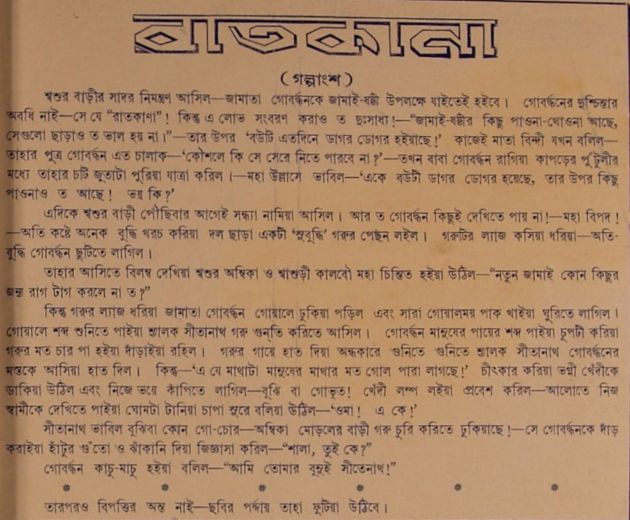 রাতকানা
(গল্পাংশ)
শ্বশুর বাড়ীর সাদর নিমন্ত্রণ আসিল—জামাতা গোবর্দ্ধনকে জামাই-ষষ্ঠী উপলক্ষে যাইতেই হইবে। গোবর্দ্ধনের দুশ্চিন্তার
অবধি নাই—সে যে "রাতকাণা"! কিন্তু এ লোভ সংবরণ করাও ত দুঃসাধ্য!—"জামাই-ষষ্ঠীর কিছু পাওনা-থোওনা আছে,
সেগুলো ছাড়াও ত ভাল হয় না।"—তার উপর 'বউটি এতদিনে ডাগর ডোগর হইয়াছে!' কাজেই মাতা বিন্দী যখন বলিল—
তাহার পুত্র গোবর্দ্ধন এত চালাক—'কৌশলে কি সে সেরে নিতে পারবে না?'—তখন বাবা গোবর্দ্ধন রাগিয়া কাপড়ের পুঁটুলীর
মধ্যে তাহার চটি জুতাটা পুরিয়া যাত্রা করিল।—মহা উল্লাসে ভাবিল—'একে বউটা ডাগর ডোগর হয়েছে, তার উপর কিছু
পাওনাও ত আছে! ভয় কি?'
এদিকে শ্বশুর বাড়ী পৌঁছিবার আগেই সন্ধ্যা নামিয়া আসিল। আর ত গোবর্দ্ধন কিছুই দেখিতে পায় না!—মহা বিপদ!
—অতি কষ্টে অনেক বুদ্ধি খরচ করিয়া দল ছাড়া একটী 'সুবুদ্ধি' গরুর পেছন লইল। গরুটির ল্যাজ কসিয়া ধরিয়া—অতি-
বুদ্ধি গোবর্দ্ধন ছুটিতে লাগিল।
তাহার আসিতে বিলম্ব দেখিয়া শ্বশুর অম্বিকা ও শ্বাশুড়ী কালবৌ মহা চিন্তিত হইয়া উঠিল—"নতুন জামাই কোন কিছুর
জন্য রাগ টাগ করলে না ত?"
কিন্তু গরুর ল্যাজ ধরিয়া জামাতা গোবর্দ্ধন গোয়ালে ঢুকিয়া পড়িল এবং সারা গোয়ালময় পাক খাইয়া ঘুরিতে লাগিল।
গোয়ালে শব্দ শুনিতে পাইয়া শ্যালক সীতানাথ গরু গুন্‌তি করিতে আসিল। গোবর্দ্ধন মানুষের পায়ের শব্দ পাইয়া চুপটী করিয়া
গরুর মত চার পা হইয়া দাঁড়াইয়া রহিল। গরুর গায়ে হাত দিয়া অন্ধকারে গুনিতে গুনিতে শ্যালক সীতানাথ গোবর্দ্ধনের
মস্তকে আসিয়া হাত দিল। কিন্তু—'এ যে মাথাটা মানুষের মাথার মত গোল পারা লাগছে!' চীৎকার করিয়া ভগ্নী খেঁদীকে
ডাকিয়া উঠিল এবং নিজে ভয়ে কাঁপিতে লাগিল—বুঝি বা গোভূত! খেঁদী লম্প লইয়া প্রবেশ করিল—আলোতে নিজ
স্বামীকে দেখিতে পাইয়া ঘোমটা টানিয়া চাপা সুরে বলিয়া উঠিল—'ওমা! এ কে!'
সীতানাথ ভাবিল বুঝিবা কোন গো-চোর—অম্বিকা মোড়লের বাড়ী গরু চুরি করিতে ঢুকিয়াছে!—সে গোবর্দ্ধনকে দাঁড়
করাইয়া হাঁটুর গুঁতো ও ঝাঁকানি দিয়া জিজ্ঞাসা করিল—"শালা, তুই কে?"
গোবর্দ্ধন কাচু-মাচু হইয়া বলিল—"আমি তোমার বুনুই সীতেনাথ!"
তারপরও বিপত্তির অন্ত নাই—ছবির পর্দ্দায় তাহা ফুটিয়া উঠিবে।